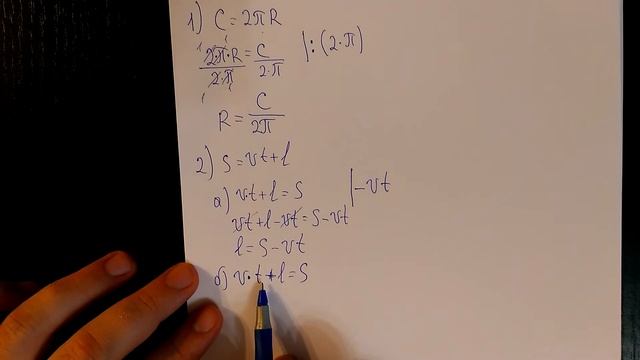 1) C = 2πR
2·π·R/2·π = C/2·π |:(2·π)
R = C/2π
2) S = vt + l
а) v·t + l = S |-vt
vt + l - vt = S - vt
l = S - vt
б) v·t + l = S